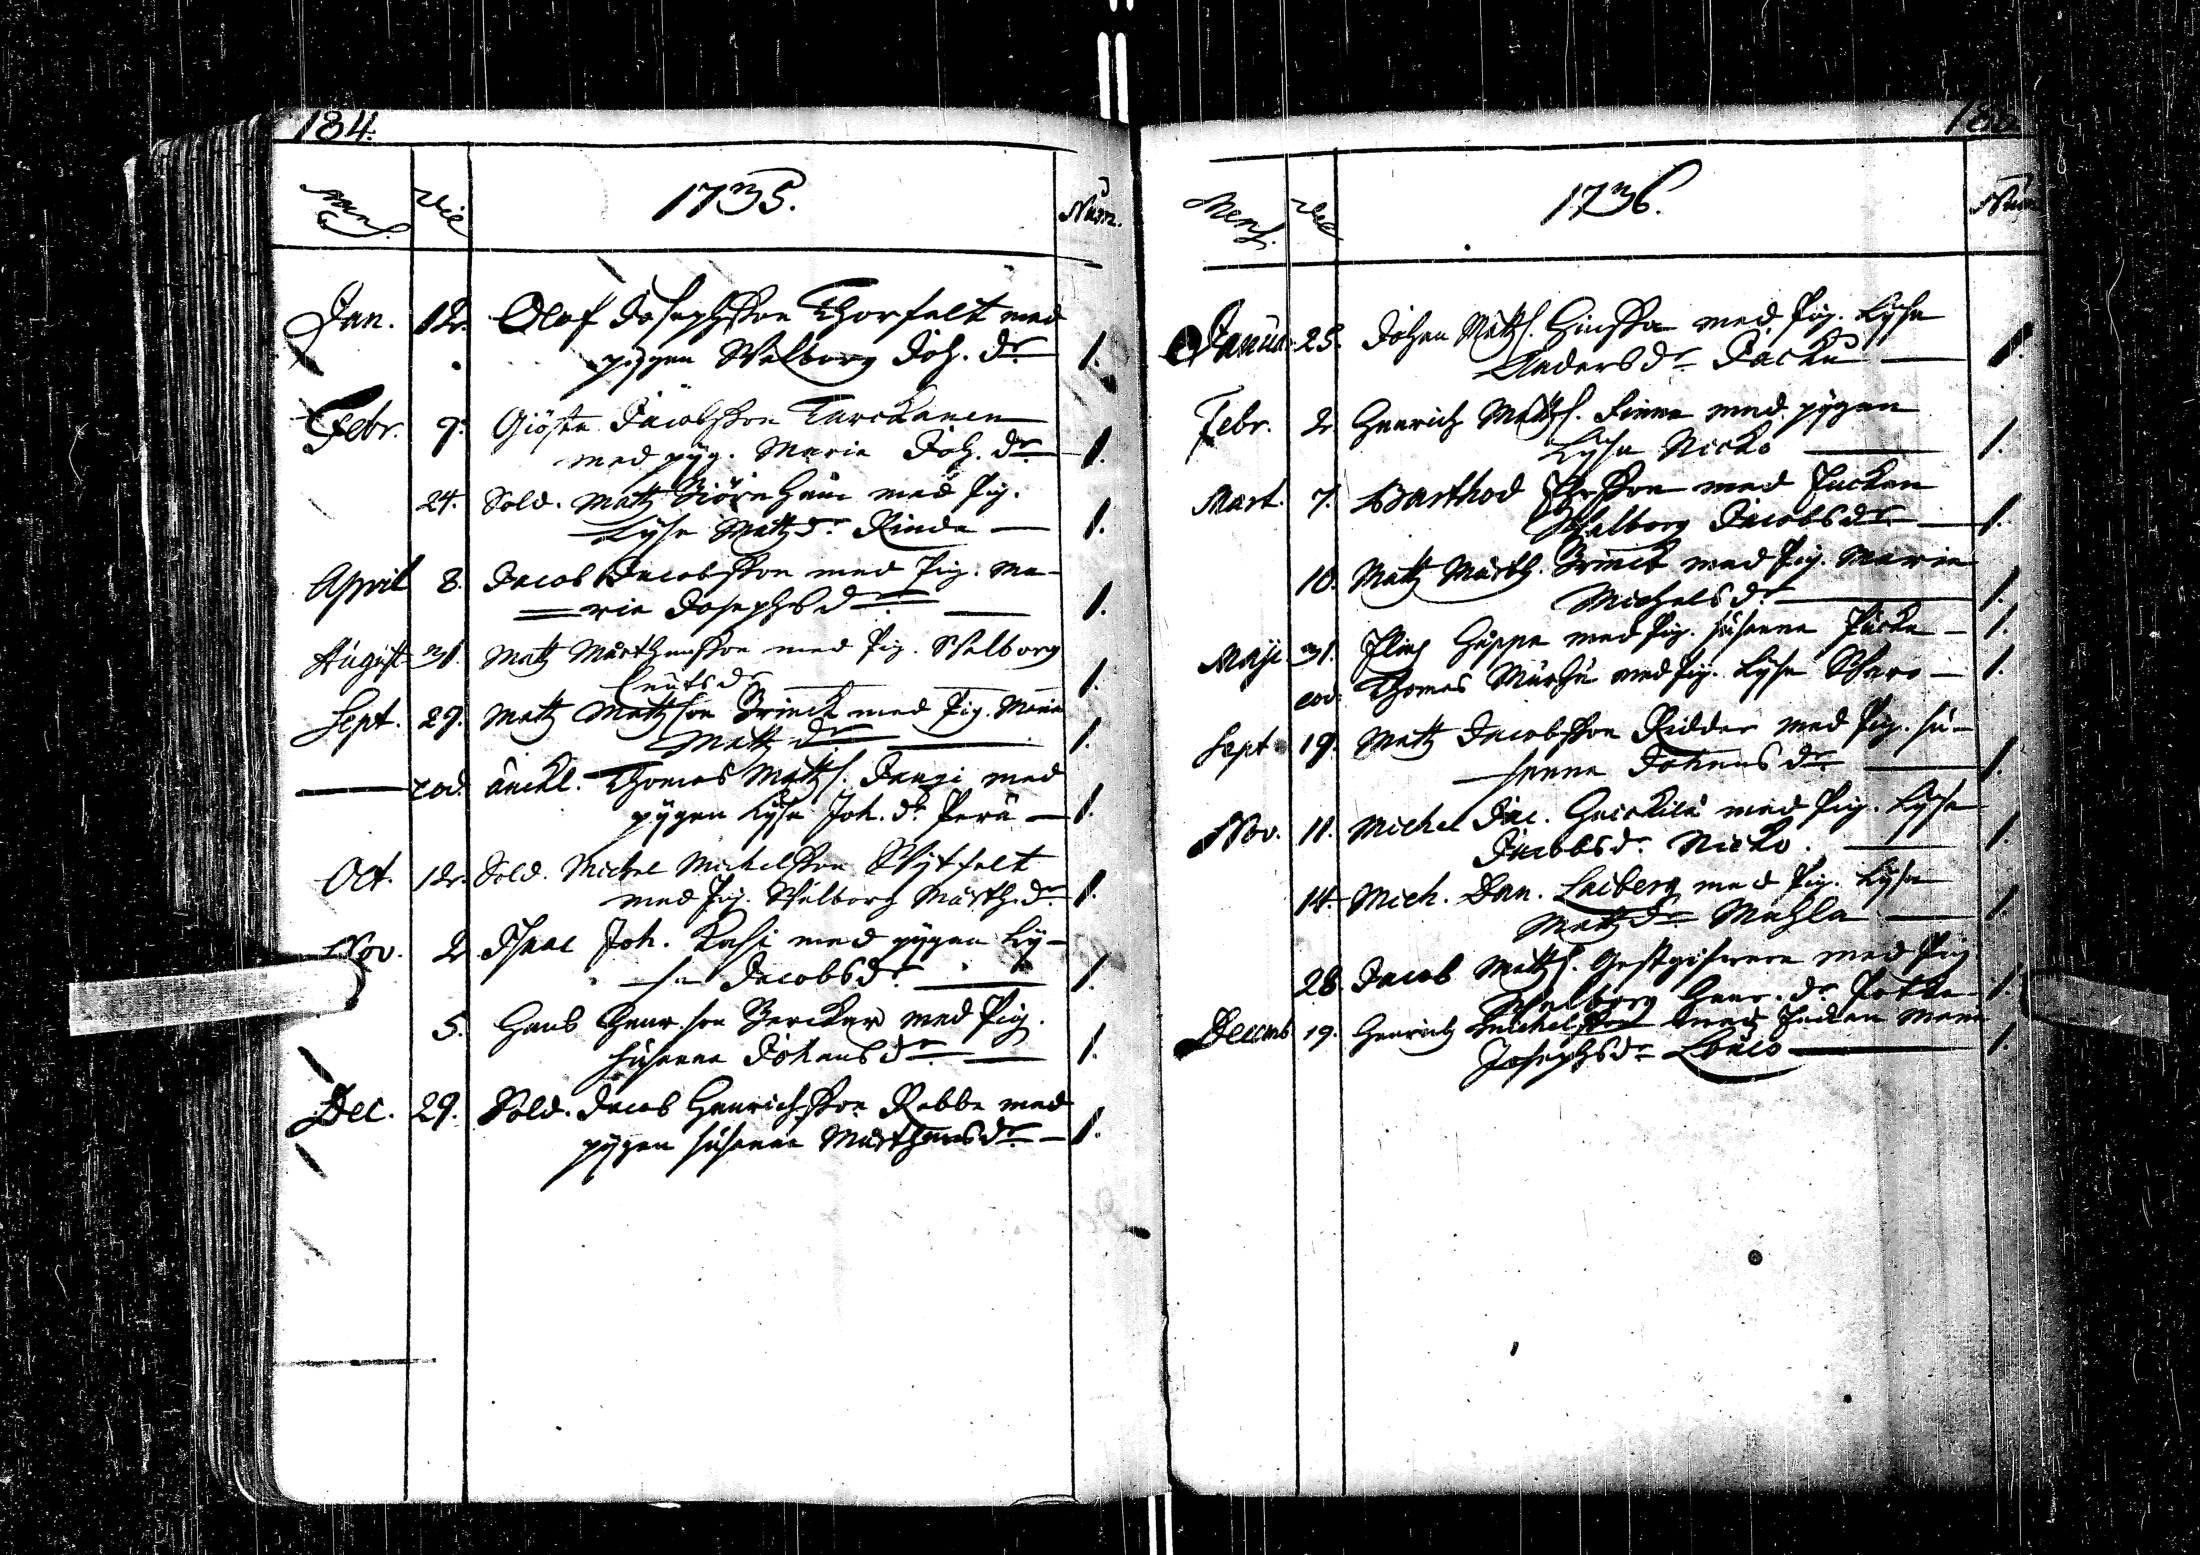 184.
Mens. Die 1735. Num.
Jan. 12. Olof Josephsson Thorfelt med
pygen Walborg Joh. dr 1.
Febr. 9. Giösta Jacobsson Tarckanen
med pyg. Maria Joh. dr 1.
24. Sold. Matz Biörn med Pig.
Lysa Matzdr Rinda 1.
April 8. Jacob Jacobsson med Pig. Ma-
ria Josephsdr. 1.
August 31. Matz Mårthensson med Pig. Walborg
Cnutsdr 1.
Sept. 29. Matz Mattsson Brinck med Pig. Maria
Matzdr 1.
eod. änckl. Thomas Matts. med
pygen Lysa Joh. dr Perä 1.
Oct. 12. Sold. Michel Michelsson Wytfelt
med Pig. Walborg Mårth. dr 1.
Nov. 2. Isaac Joh. Kassi med pygen Ly-
sa Jacobsdr. 1.
5. Hans Henr.son Bercker med Pig.
Susanna Johansdr 1.
Dec. 29. Sold. Jacob Henrichsson Rebbe med
pygen Susanna Mårthensdr 1.
Mens. Die 1736. Num
Januar 25. Johan Matts. med Pig. Lysa
Andersdr Packu 1.
Febr. 2. Henrich Matts. Finne med pygen
Lysa Nicko 1.
Mart. 7. Barthod med Enckan
Walborg Jacobsdr 1.
10. Matz Mårth. Brinck med Pig. Maria
Michelsdr 1.
Maji 31. Elias Huppa med Pig. Susanna 1.
eod. Thomas med Pig. Lysa 1.
Sept. 19. Matz Jacobsson Ridder med Pig. Su-
sanna Johansdr. 1.
Nov. 11. Michel Jac. med Pig. Lysa
Jacobsdr. Nicko. 1.
14. Mich. Dan. Laiberg med Pig. Lysa
Matzdr Mahla 1.
28. Jacob Matts. Gestgifwere med Pig
Walborg Henr. dr 1.
Decemb 19. Henrich Michelsson med Enckan Maria
Josephsdr 1.